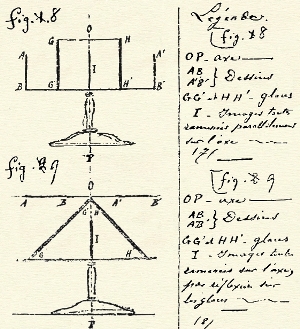 fig. 8
O
G H
A A'
I
B G' H' B'
P
fig. 9
O
A B A' B'
G' H'
I
G H
P
Légende.
fig. 8
OP - axe
AB
A'B' } Dessins
GG' et HH' - glaces
I - Images toutes
ramenées parallèlement
sur l'axe
fig. 9
OP - axe
AB.
A'B'. } Dessins
GG' et HH' - glaces
I - Images toutes
ramenées sur l'axe,
par réflexion sur
les glaces